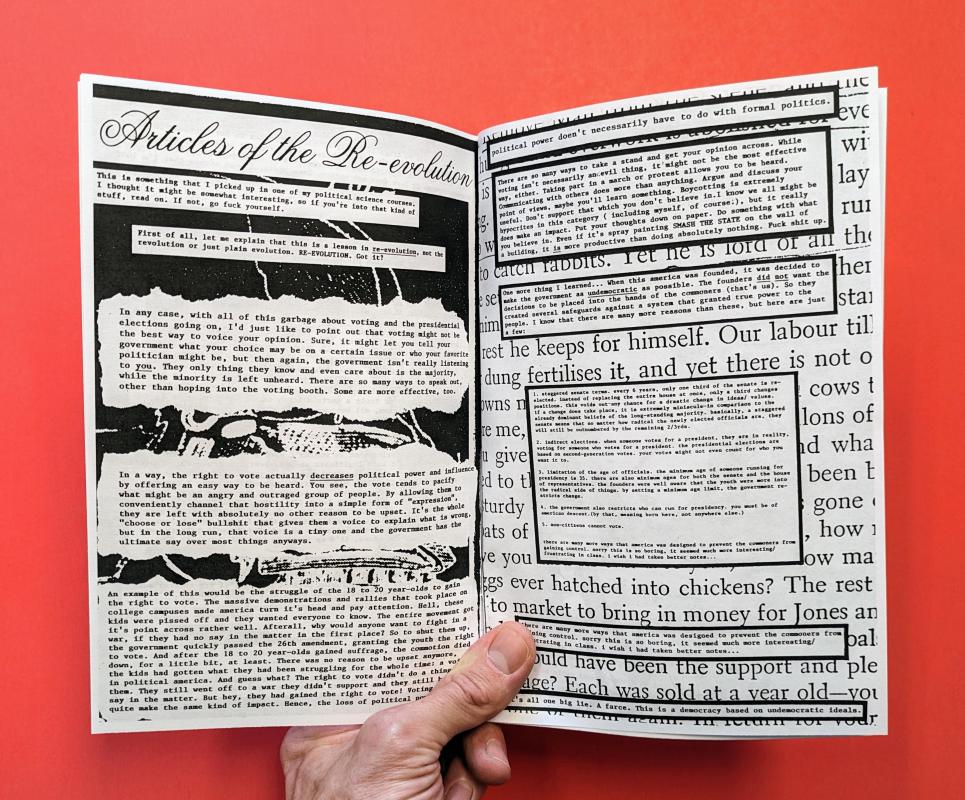 Articles of the Re-evolution
This is something that I picked up in one of my political science courses.
I thought it might be somewhat interesting, so if you're into that kind of
stuff, read on. If not, go fuck yourself.
First of all, let me explain that this is a lesson in re-evolution, not the
revolution or just plain evolution. RE-EVOLUTION. Got it?
In any case, with all of this garbage about voting and the presidential
elections going on, I'd just like to point out that voting might not be
the best way to voice your opinion. Sure, it might let you tell your
government what your choice may be on a certain issue or who your favorite
politician might be, but then again, the government isn't really listening
to you. They only thing they know and even care about is the majority,
while the minority is left unheard. There are so many ways to speak out,
other than hoping into the voting booth. Some are more effective, too.
In a way, the right to vote actually decreases political power and influence
by offering an easy way to be heard. You see, the vote tends to pacify
what might be an angry and outraged group of people. By allowing them to
conveniently channel that hostility into a simple form of "expression",
they are left with absolutely no other reason to be upset. It's the whole
"choose or lose" bullshit that gives them a voice to explain what is wrong,
but in the long run, that voice is a tiny one and the government has the
ultimate say over most things anyways.
An example of this would be the struggle of the 18 to 20 year-olds to gain
the right to vote. The massive demonstrations and rallies that took place on
college campuses made america turn it's head and pay attention. Hell, these
kids were pissed off and they wanted everyone to know. The entire movement got
it's point across rather well. Afterall, why would anyone want to fight in a
war, if they had no say in the matter in the first place? So to shut them up,
the government quickly passed the 26th amendment, granting the youth the right
to vote. And after the 18 to 20 year-olds gained suffrage, the commotion died
down, for a little bit, at least. There was no reason to be upset anymore,
the kids had gotten what they had been struggling for the whole time: a
in political america. And guess what? The right to vote didn't do a
them. They still went off to a war they didn't support and they still
say in the matter. But hey, they had gained the right to vote! Voting
quite make the same kind of impact. Hence, the loss of political
political power doen't necessarily have to do with formal politics.
There are so many ways to take a stand and get your opinion across. While
voting isn't necessarily an evil thing, it might not be the most effective
way, either. Taking part in a march or protest allows you to be heard.
Communicating with others does more than anything. Argue and discuss your
point of views, maybe you'll learn something. Boycotting is extremely
useful. Don't support that which you don't believe in. I know we all might be
hypocrites in this category ( including myself, of course:), but it really
does make an impact. Put your thoughts down on paper. Do something with what
you believe in. Even if it's spray painting SMASH THE STATE on the wall of
a building, it is more productive than doing absolutely nothing. Fuck shit up.
to catch rabbits. Yet he is lord of all the
One more thing I learned... When this america was founded, it was decided to
make the government as undemocratic as possible. The founders did not want the
decisions to be placed into the hands of the commoners (that's us). So they
created several safeguards against a system that granted true power to the
people. I know that there are many more reasons than these, but here are just
a few:
rest he keeps for himself. Our labour till
dung fertilises it, and yet there is not o
1. staggered senate terms. every 6 years, only one third of the senate is re-
elected. instead of replacing the entire house at once, only a third changes
positions. this voids out any chance for a drastic change in ideas/ values.
if a change does take place, it is extremely miniscule in comparison to the
already dominant beliefs of the long-standing majority. basically, a staggered
senate means that no matter how radical the newly elected officials are, they
will still be outnumbered by the remaining 2/3rds.
2. indirect elections. when someone votes for a president, they are in reality,
voting for someone who votes for a president. the presidential elections are
based on second-generation votes. your votes might not even count for who you
want it to.
3. limitation of the age of officials. the minimum age of someone running for
presidency is 35. there are also minimum ages for both the senate and the house
of representatives. the founders were well aware that the youth were more into
the radical side of things. by setting a minimum age limit, the government re-
stricts change.
4. the government also restricts who can run for presidency. you must be of
american descent.(by that, meaning born here, not anywhere else.)
5. non-citizens cannot vote.
there are many more ways that america was designed to prevent the commoners from
gaining control. sorry this is so boring, it seemed much more interesting/
frustrating in class. i wish i had taken better notes...
ggs ever hatched into chickens? The rest
to market to bring in money for Jones an
there are many more ways that america was designed to prevent the commoners from
gaining control. sorry this is so boring, it seemed much more interesting/
frustrating in class. i wish i had taken better notes...
ould have been the support and ple
age? Each was sold at a year old—you
's all one big lie. A farce. This is a democracy based on undemocratic ideals.